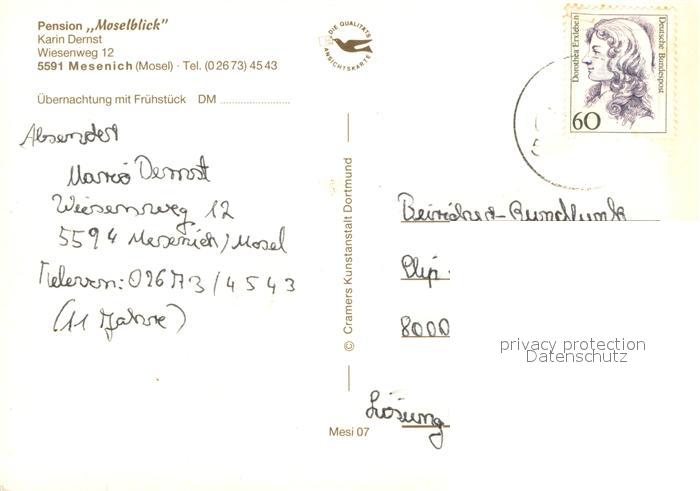 Pension „Moselblick"
Karin Dernst
Wiesenweg 12
5591 Mesenich (Mosel) · Tel. (0 26 73) 45 43
Übernachtung mit Frühstück DM
DIE QUALITÄTS
ANSICHTSKARTE
Dorothea Erxleben
Deutsche Bundespost
60
Absender
Mario Dernst
Wiesenweg 12
5594 Mesenich/Mosel
Televon: 02673/4543
(11 Jahre)
© Cramers Kunstanstalt Dortmund
8000
privacy protection
Datenschutz
Lösung
Mesi 07